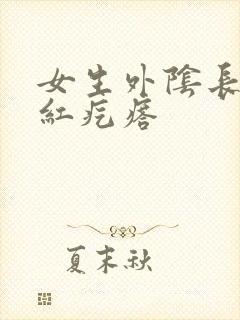 女生外陰長
紅疙瘩
夏末秋